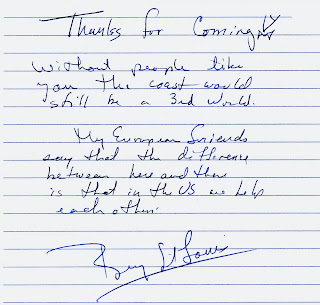 Thanks for Coming
Without people like
you the coast would
still be a 3rd World.
My European friends
say that the difference
between here and there
is that in the US we help
each other.
St Louis